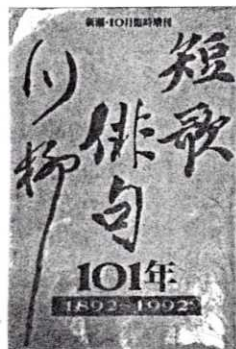 新潮・10月臨時増刊
短歌
俳句
川柳
101年
1892~1992